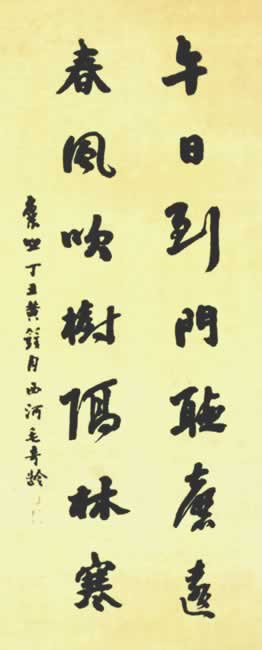 午日到門聽遠
春風吹樹隔林寒
丁丑黃鐘月西河毛奇齡